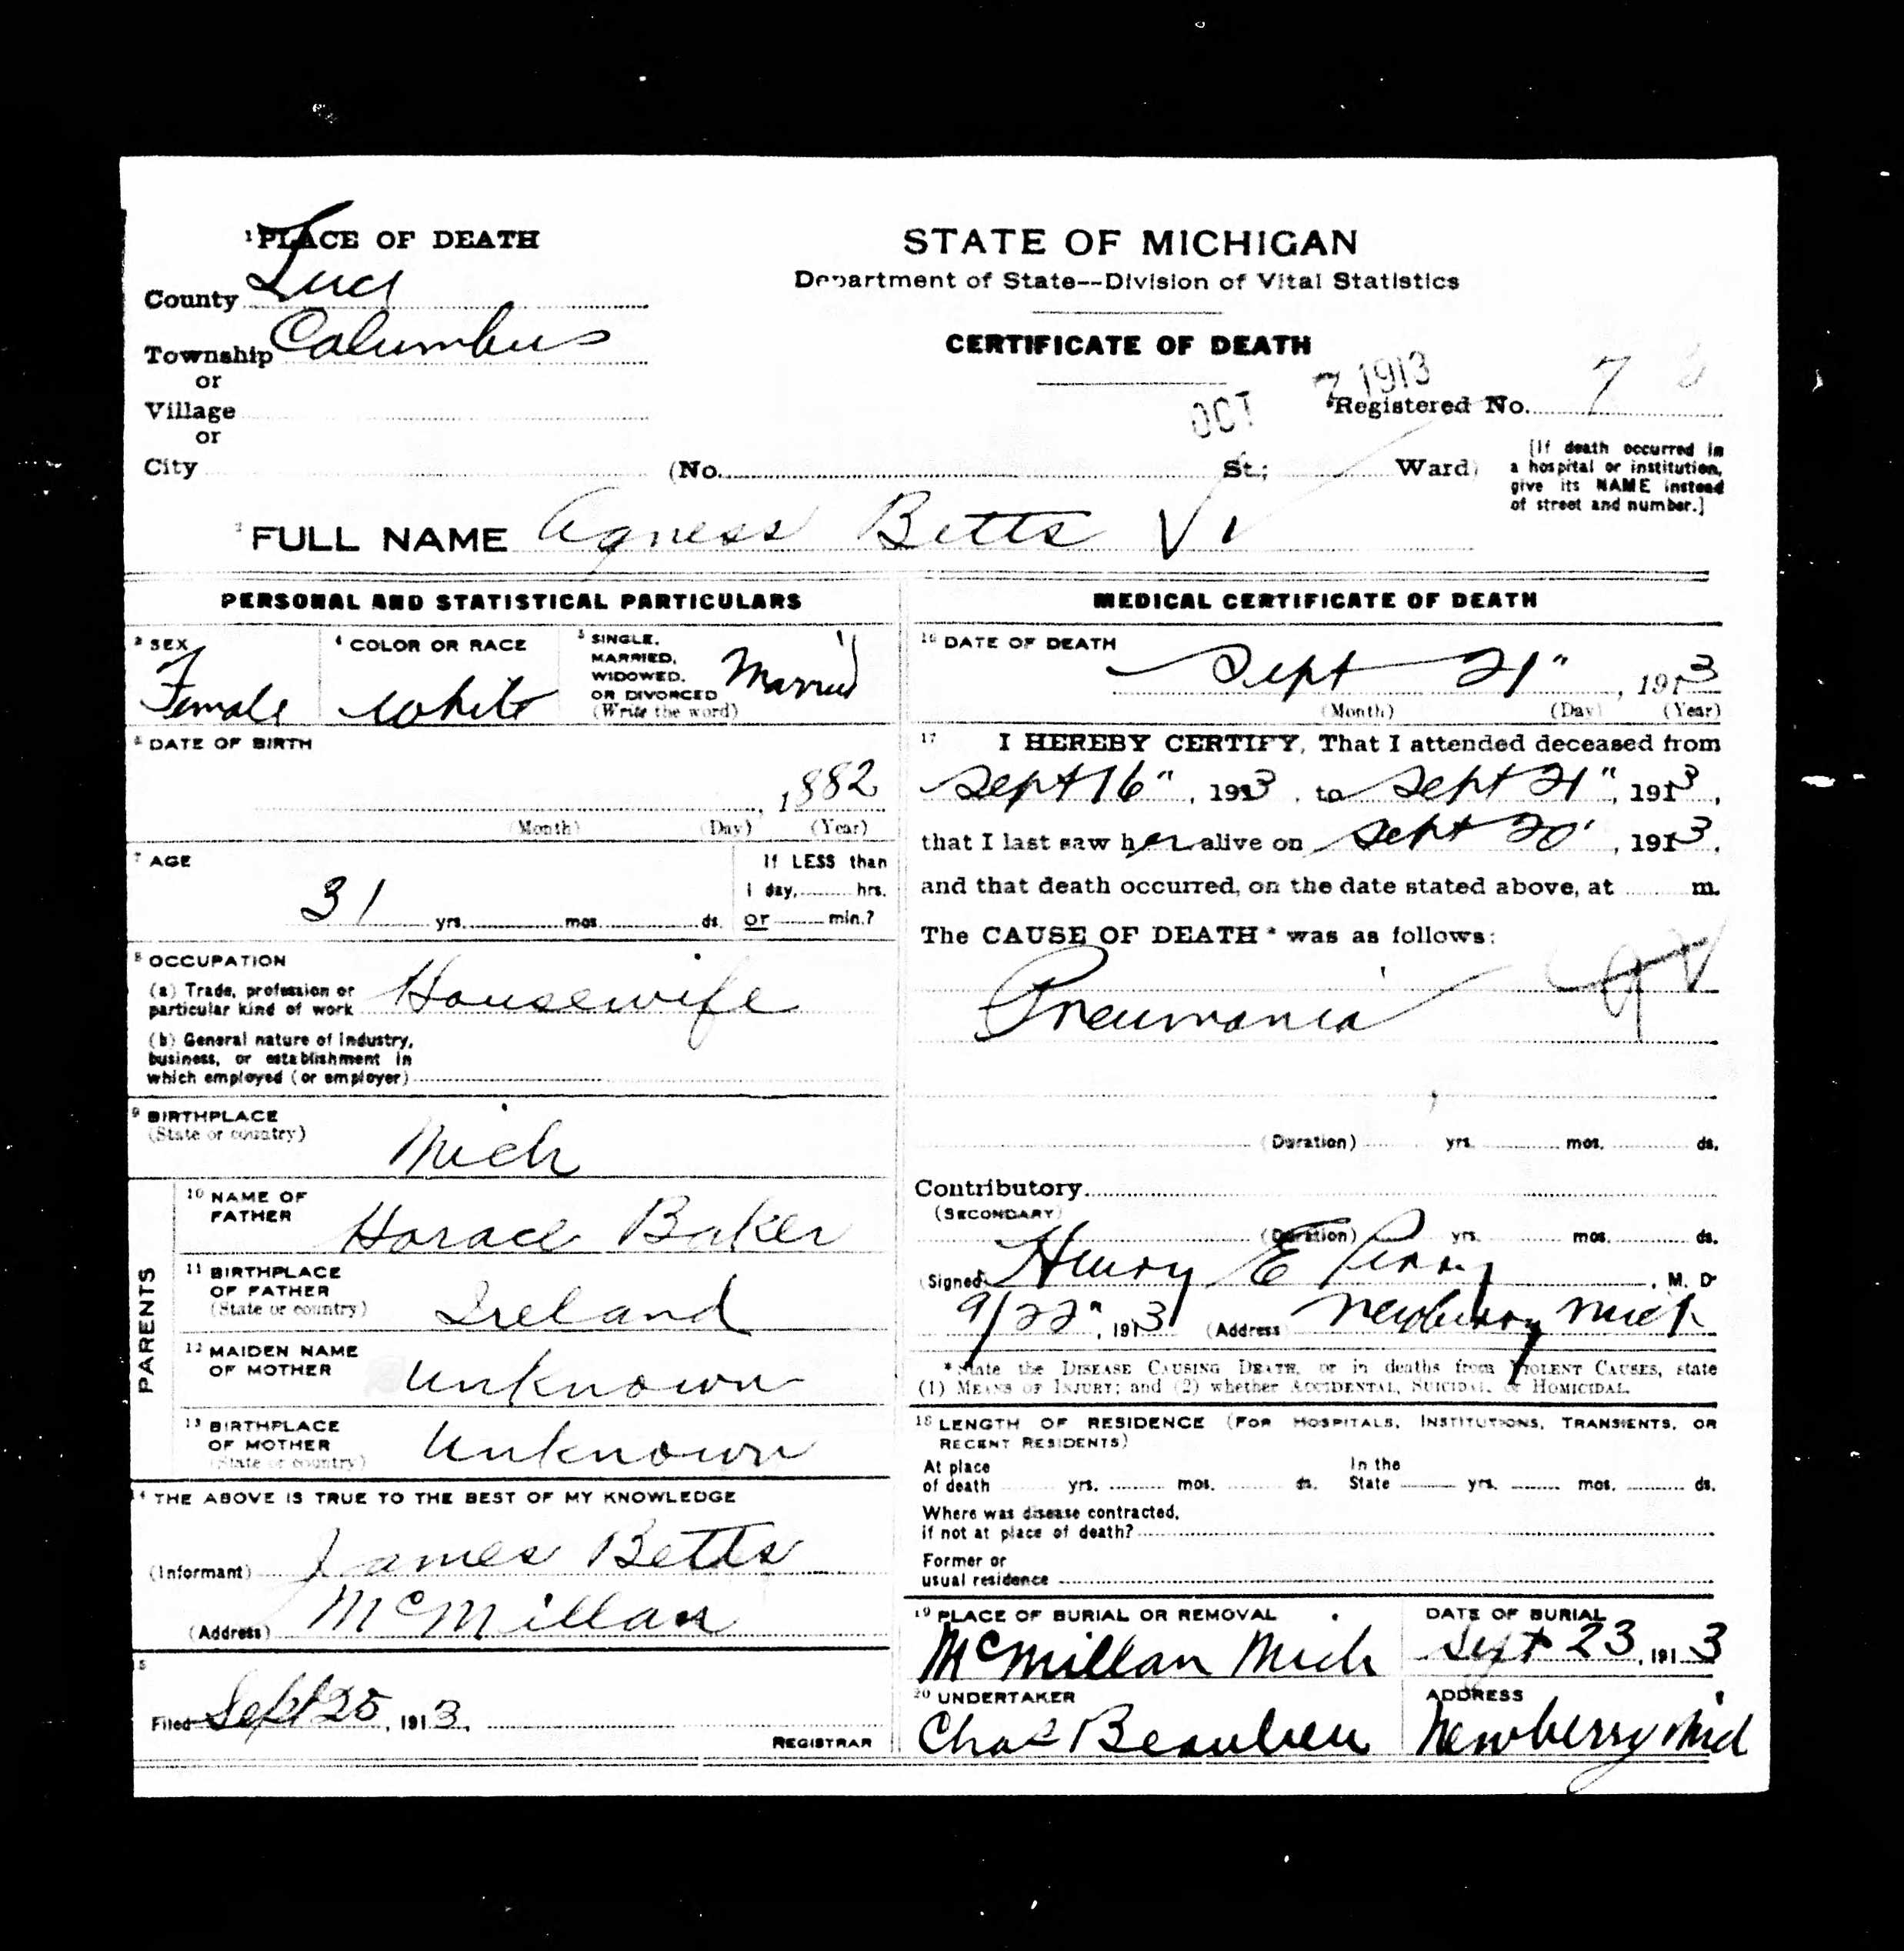 1 PLACE OF DEATH
County Luce
Township Columbus
or
Village
or
City (No. St.; Ward)
STATE OF MICHIGAN
Department of State--Division of Vital Statistics
CERTIFICATE OF DEATH
OCT 7 1913
Registered No. 7
[If death occurred in
a hospital or institution,
give its NAME instead
of street and number.]
2 FULL NAME Agness Betts
PERSONAL AND STATISTICAL PARTICULARS
3 SEX
Female
4 COLOR OR RACE
White
5 SINGLE,
MARRIED,
WIDOWED,
OR DIVORCED
(Write the word)
Married
6 DATE OF BIRTH
, 1882
(Month) (Day) (Year)
7 AGE
31 yrs. mos. ds.
If LESS than
1 day, hrs.
or min.?
8 OCCUPATION
(a) Trade, profession or
particular kind of work Housewife
(b) General nature of industry,
business, or establishment in
which employed (or employer)
9 BIRTHPLACE
(State or country)
Mich
PARENTS
10 NAME OF
FATHER
Horace Baker
11 BIRTHPLACE
OF FATHER
(State or country)
Ireland
12 MAIDEN NAME
OF MOTHER
Unknown
13 BIRTHPLACE
OF MOTHER
(State or country)
Unknown
14 THE ABOVE IS TRUE TO THE BEST OF MY KNOWLEDGE
(Informant) James Betts
(Address) McMillan
15
Filed Sept 25, 1913.
REGISTRAR
MEDICAL CERTIFICATE OF DEATH
16 DATE OF DEATH
Sept 21", 1913
(Month) (Day) (Year)
17 I HEREBY CERTIFY, That I attended deceased from
Sept 16", 1913, to Sept 21", 1913,
that I last saw her alive on Sept 20', 1913,
and that death occurred, on the date stated above, at m.
The CAUSE OF DEATH * was as follows:
Pneumonia
(Duration) yrs. mos. ds.
Contributory
(SECONDARY)
(Duration) yrs. mos. ds.
(Signed) Henry E Perry, M. D.
9/22", 1913 (Address) Newberry Mich
* State the DISEASE CAUSING DEATH, or in deaths from VIOLENT CAUSES, state
(1) MEANS OF INJURY; and (2) whether ACCIDENTAL, SUICIDAL, or HOMICIDAL.
18 LENGTH OF RESIDENCE (FOR HOSPITALS, INSTITUTIONS, TRANSIENTS, OR
RECENT RESIDENTS)
At place
of death yrs. mos. ds.
In the
State yrs. mos. ds.
Where was disease contracted,
if not at place of death?
Former or
usual residence
19 PLACE OF BURIAL OR REMOVAL
McMillan Mich
DATE OF BURIAL
Sept 23, 1913
20 UNDERTAKER
Chas Beaulieu
ADDRESS
Newberry Mich